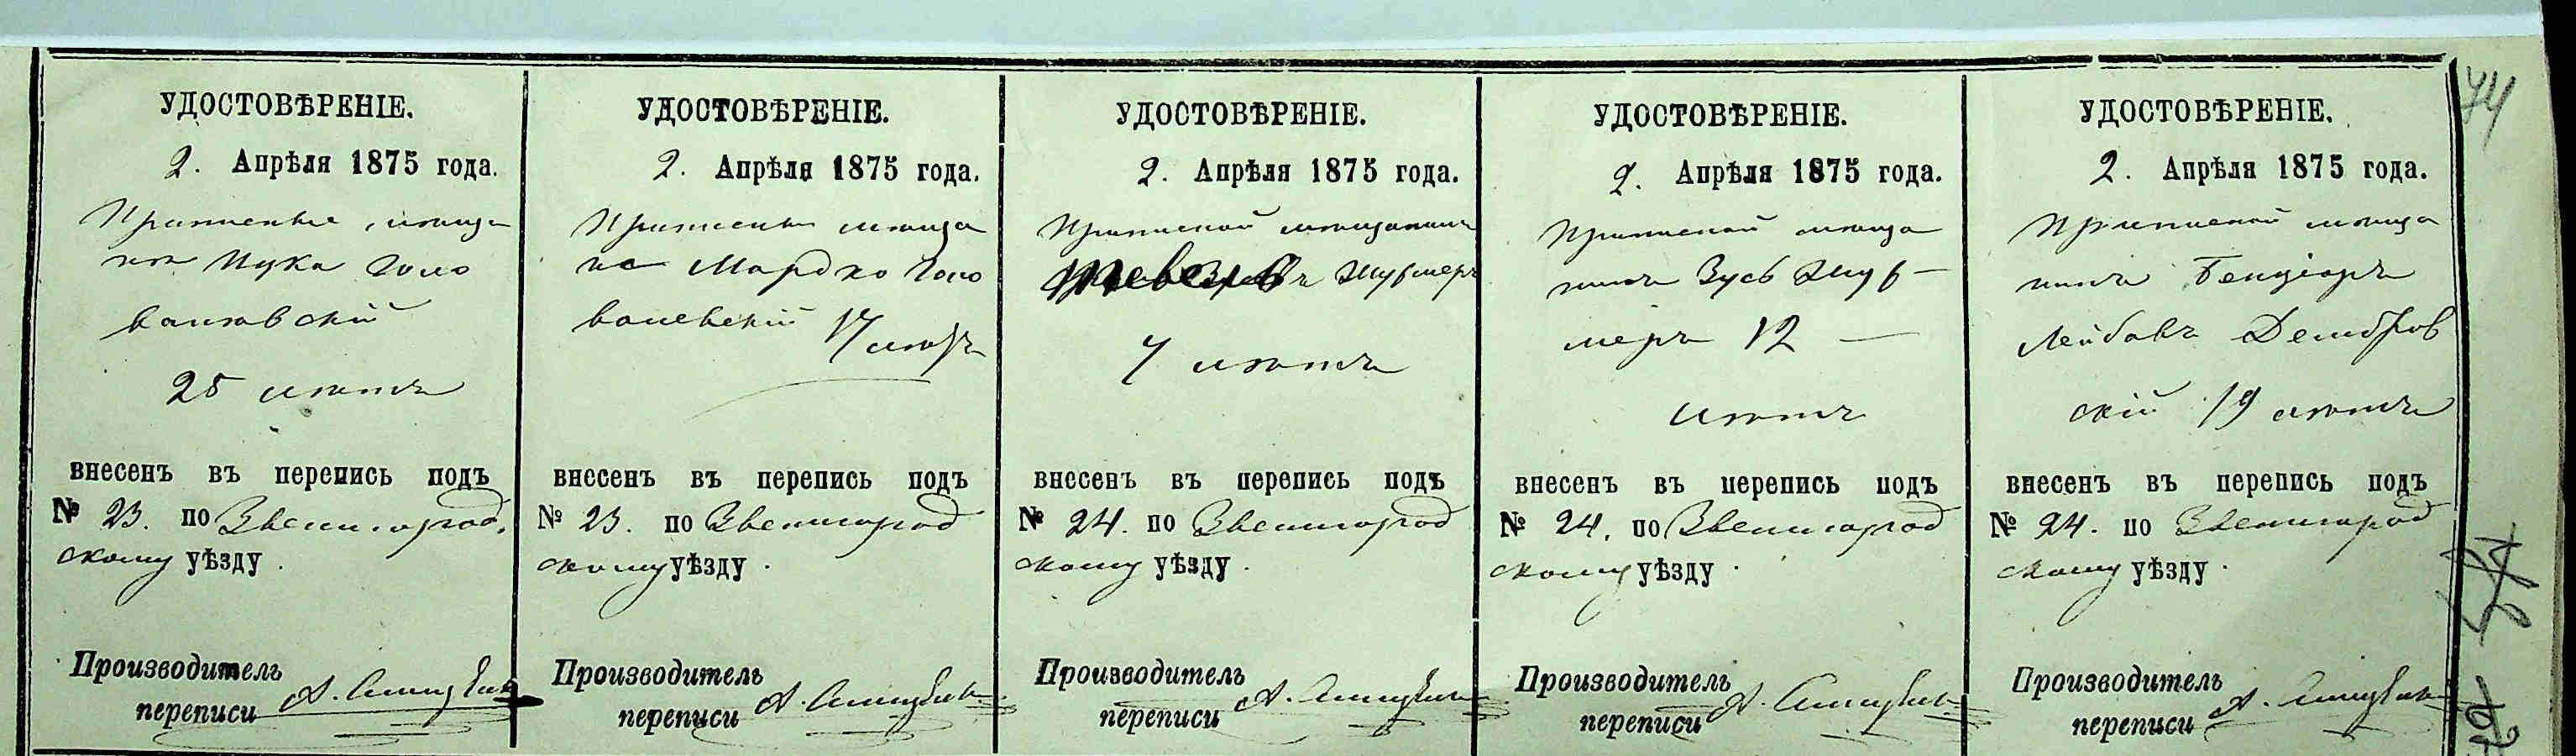 74
УДОСТОВѢРЕНІЕ.
2. Апрѣля 1875 года.
Ицка Голо
ванивскій
25 лѣтъ
внесенъ въ перепись подъ
№ 23. по Звенигород.
скому уѣзду.
Производитель
переписи
УДОСТОВѢРЕНІЕ.
2. Апрѣля 1875 года.
Мордко Голо
ваневскій 17 лѣтъ
внесенъ въ перепись подъ
№ 23. по Звенигород
скому уѣзду.
Производитель
переписи
УДОСТОВѢРЕНІЕ.
2. Апрѣля 1875 года.
Приписной мѣщанинъ
7 лѣтъ
внесенъ въ перепись подъ
№ 24. по Звенигород
скому уѣзду.
Производитель
переписи
УДОСТОВѢРЕНІЕ.
2. Апрѣля 1875 года.
Приписной мѣща
нинъ Зусь
12 —
лѣтъ
внесенъ въ перепись подъ
№ 24. по Звенигород
скому уѣзду.
Производитель
переписи
УДОСТОВѢРЕНІЕ.
2. Апрѣля 1875 года.
Приписной мѣща
нинъ Бенціонъ
Лейбовъ
скій 19 лѣтъ
внесенъ въ перепись подъ
№ 24. по Звенигород
скому уѣзду.
Производитель
переписи